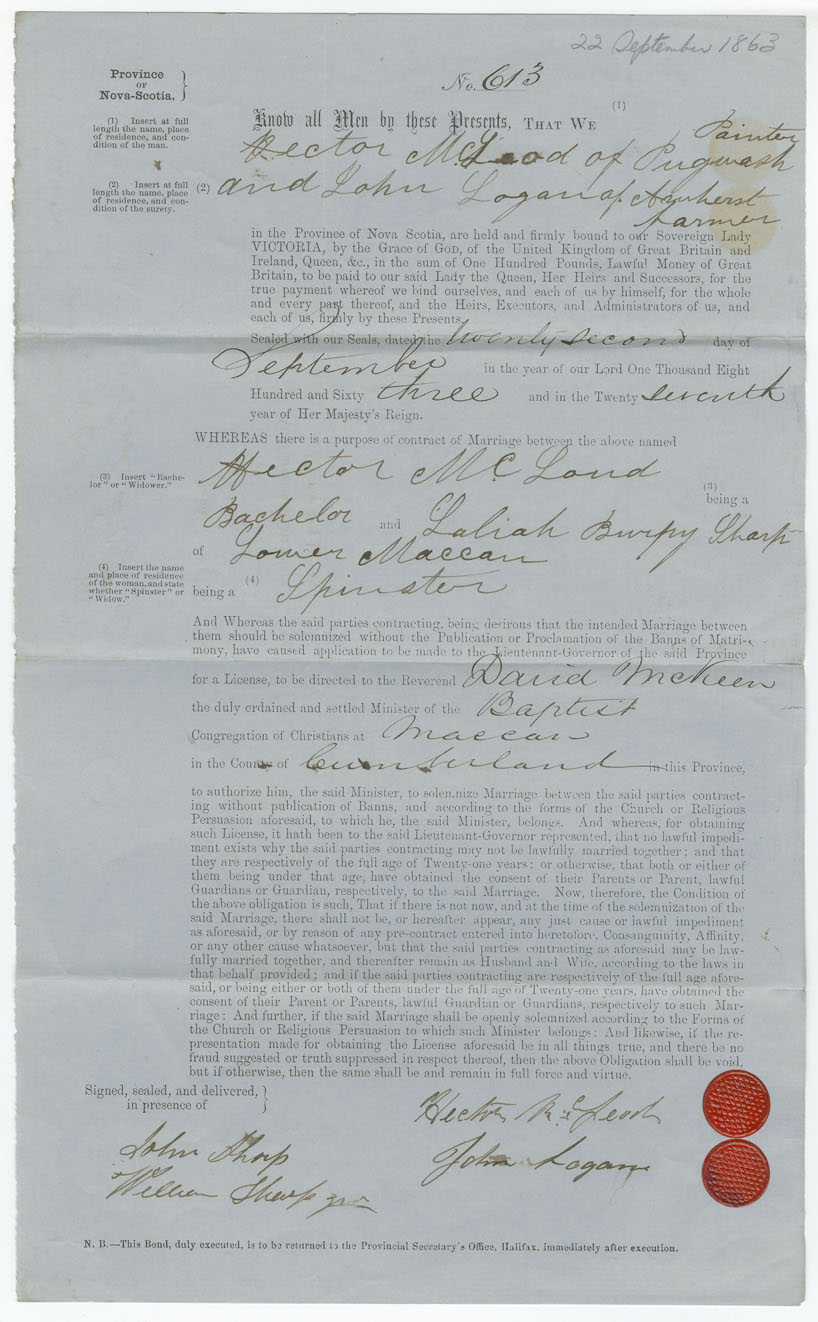 22 September 1863
Province
OF
Nova-Scotia. }
No. 613
(1)
(1) Insert at full
length the name, place
of residence, and con-
dition of the man.
Know all Men by these Presents, THAT WE
Painter
Hector McLeod of Pugwash
(2) Insert at full
length the name, place
of residence, and con-
dition of the surety.
(2) and John Logan of Amherst
farmer
in the Province of Nova Scotia, are held and firmly bound to our Sovereign Lady
VICTORIA, by the Grace of GOD, of the United Kingdom of Great Britain and
Ireland, Queen, &c., in the sum of One Hundred Pounds, Lawful Money of Great
Britain, to be paid to our said Lady the Queen, Her Heirs and Successors, for the
true payment whereof we bind ourselves, and each of us by himself, for the whole
and every part thereof, and the Heirs, Executors, and Administrators of us, and
each of us, firmly by these Presents.
Sealed with our Seals, dated the twenty second day of
September in the year of our Lord One Thousand Eight
Hundred and Sixty three and in the Twenty seventh
year of Her Majesty's Reign.
WHEREAS there is a purpose of contract of Marriage between the above named
(3) Insert "Bache-
lor" or "Widower."
Hector Mc Loud
(3)
being a
Bachelor and Laliah Burpy Sharp
of Lower Maccan
(4) Insert the name
and place of residence
of the woman, and state
whether "Spinster" or
"Widow."
being a (4) Spinster
And Whereas the said parties contracting, being desirous that the intended Marriage between
them should be solemnized without the Publication or Proclamation of the Banns of Matri-
mony, have caused application to be made to the Lieutenant-Governor of the said Province
for a License, to be directed to the Reverend David McKeen
the duly ordained and settled Minister of the Baptist
Congregation of Christians at Maccan
in the County of Cumberland in this Province,
to authorize him, the said Minister, to solemnize Marriage between the said parties contract-
ing without publication of Banns, and according to the forms of the Church or Religious
Persuasion aforesaid, to which he, the said Minister, belongs. And whereas, for obtaining
such License, it hath been to the said Lieutenant-Governor represented, that no lawful impedi-
ment exists why the said parties contracting may not be lawfully married together; and that
they are respectively of the full age of Twenty-one years; or otherwise, that both or either of
them being under that age, have obtained the consent of their Parents or Parent, lawful
Guardians or Guardian, respectively, to the said Marriage. Now, therefore, the Condition of
the above obligation is such, That if there is not now, and at the time of the solemnization of the
said Marriage, there shall not be, or hereafter appear, any just cause or lawful impediment
as aforesaid, or by reason of any pre-contract entered into heretofore, Consanguinity, Affinity,
or any other cause whatsoever, but that the said parties contracting as aforesaid may be law-
fully married together, and thereafter remain as Husband and Wife, according to the laws in
that behalf provided; and if the said parties contracting are respectively of the full age afore-
said, or being either or both of them under the full age of Twenty-one years, have obtained the
consent of their Parent or Parents, lawful Guardian or Guardians, respectively to such Mar-
riage: And further, if the said Marriage shall be openly solemnized according to the Forms of
the Church or Religious Persuasion to which such Minister belongs: And likewise, if the re-
presentation made for obtaining the License aforesaid be in all things true, and there be no
fraud suggested or truth suppressed in respect thereof, then the above Obligation shall be void,
but if otherwise, then the same shall be and remain in full force and virtue.
Signed, sealed, and delivered, }
in presence of
Hector McLeod
John Sharp
John Logan
William Sharp jnr
N. B.—This Bond, duly executed, is to be returned to the Provincial Secretary's Office, Halifax, immediately after execution.